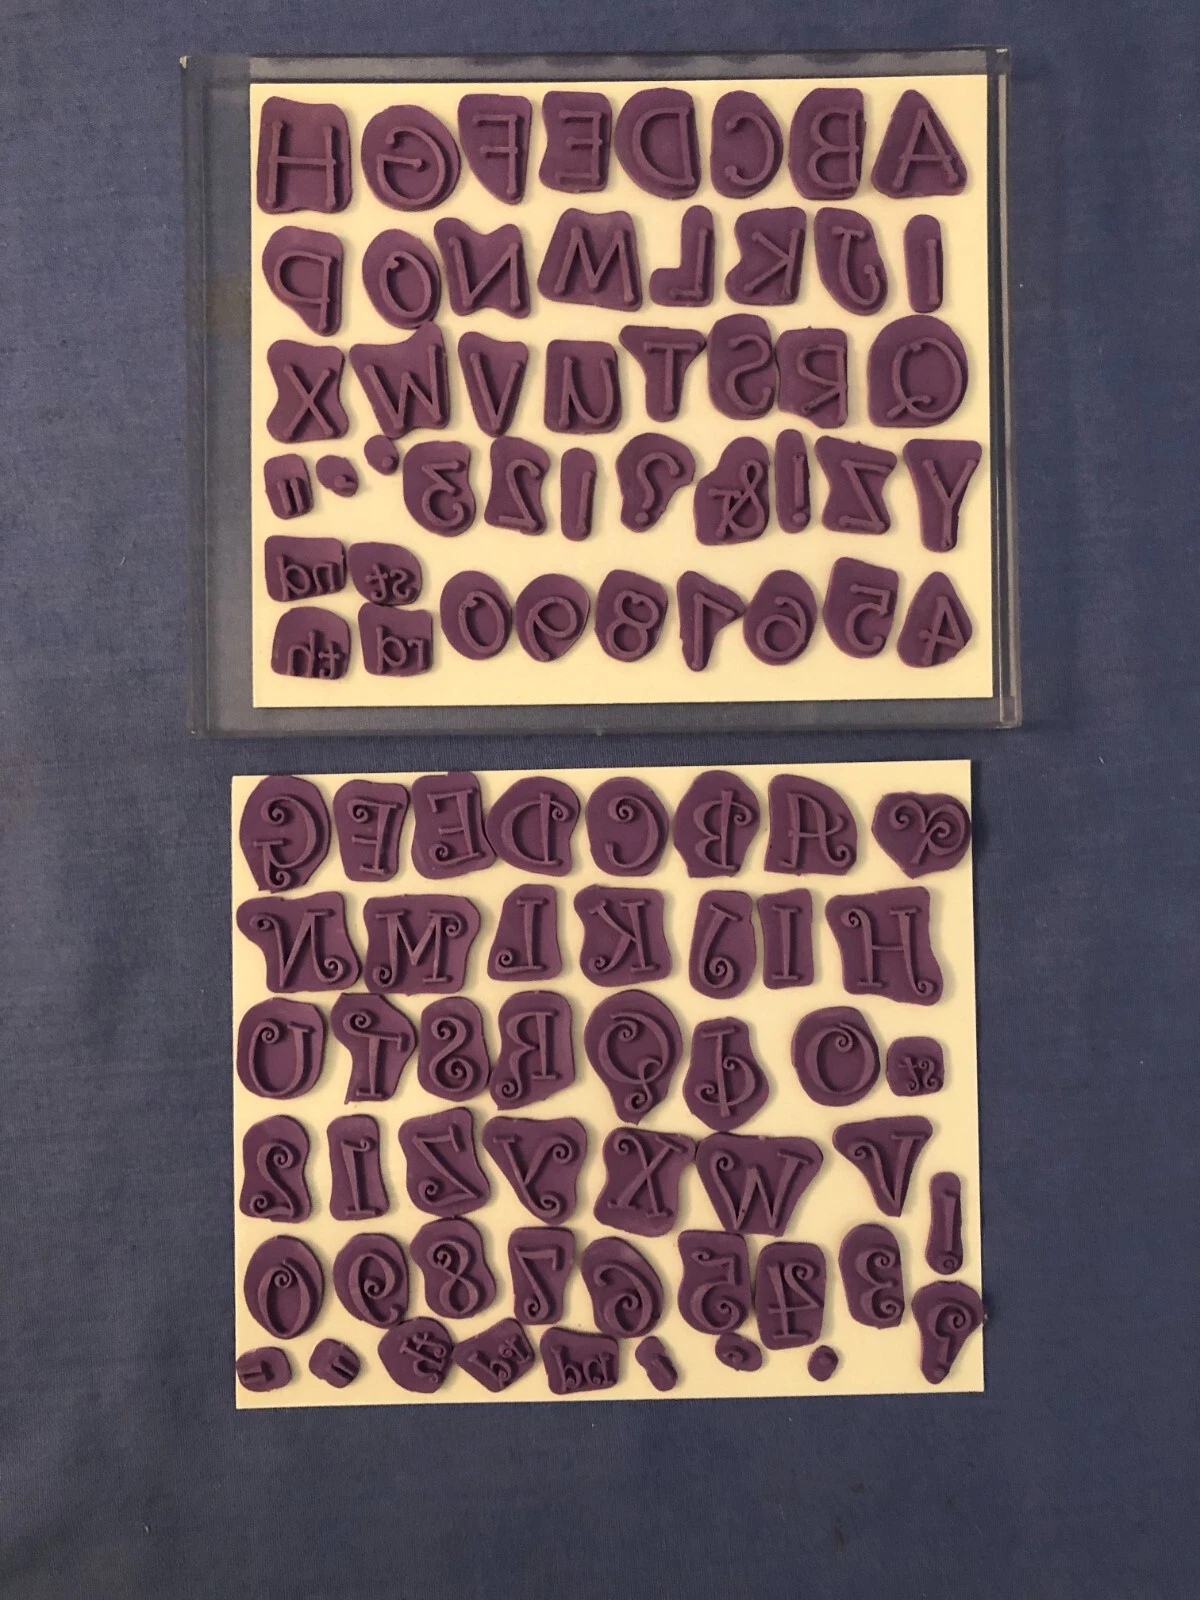 A B C D E F G H
I J K L M N O P
Q R S T U V W X
Y Z ! & ? 1 2 3 . , "
4 5 6 7 8 9 0 st nd
rd th
& A B C D E F G
H I J K L M N
st O P Q R S T U
V W X Y Z 1 2
!
3 4 5 6 7 8 9 0
?
. , ' nd rd th "